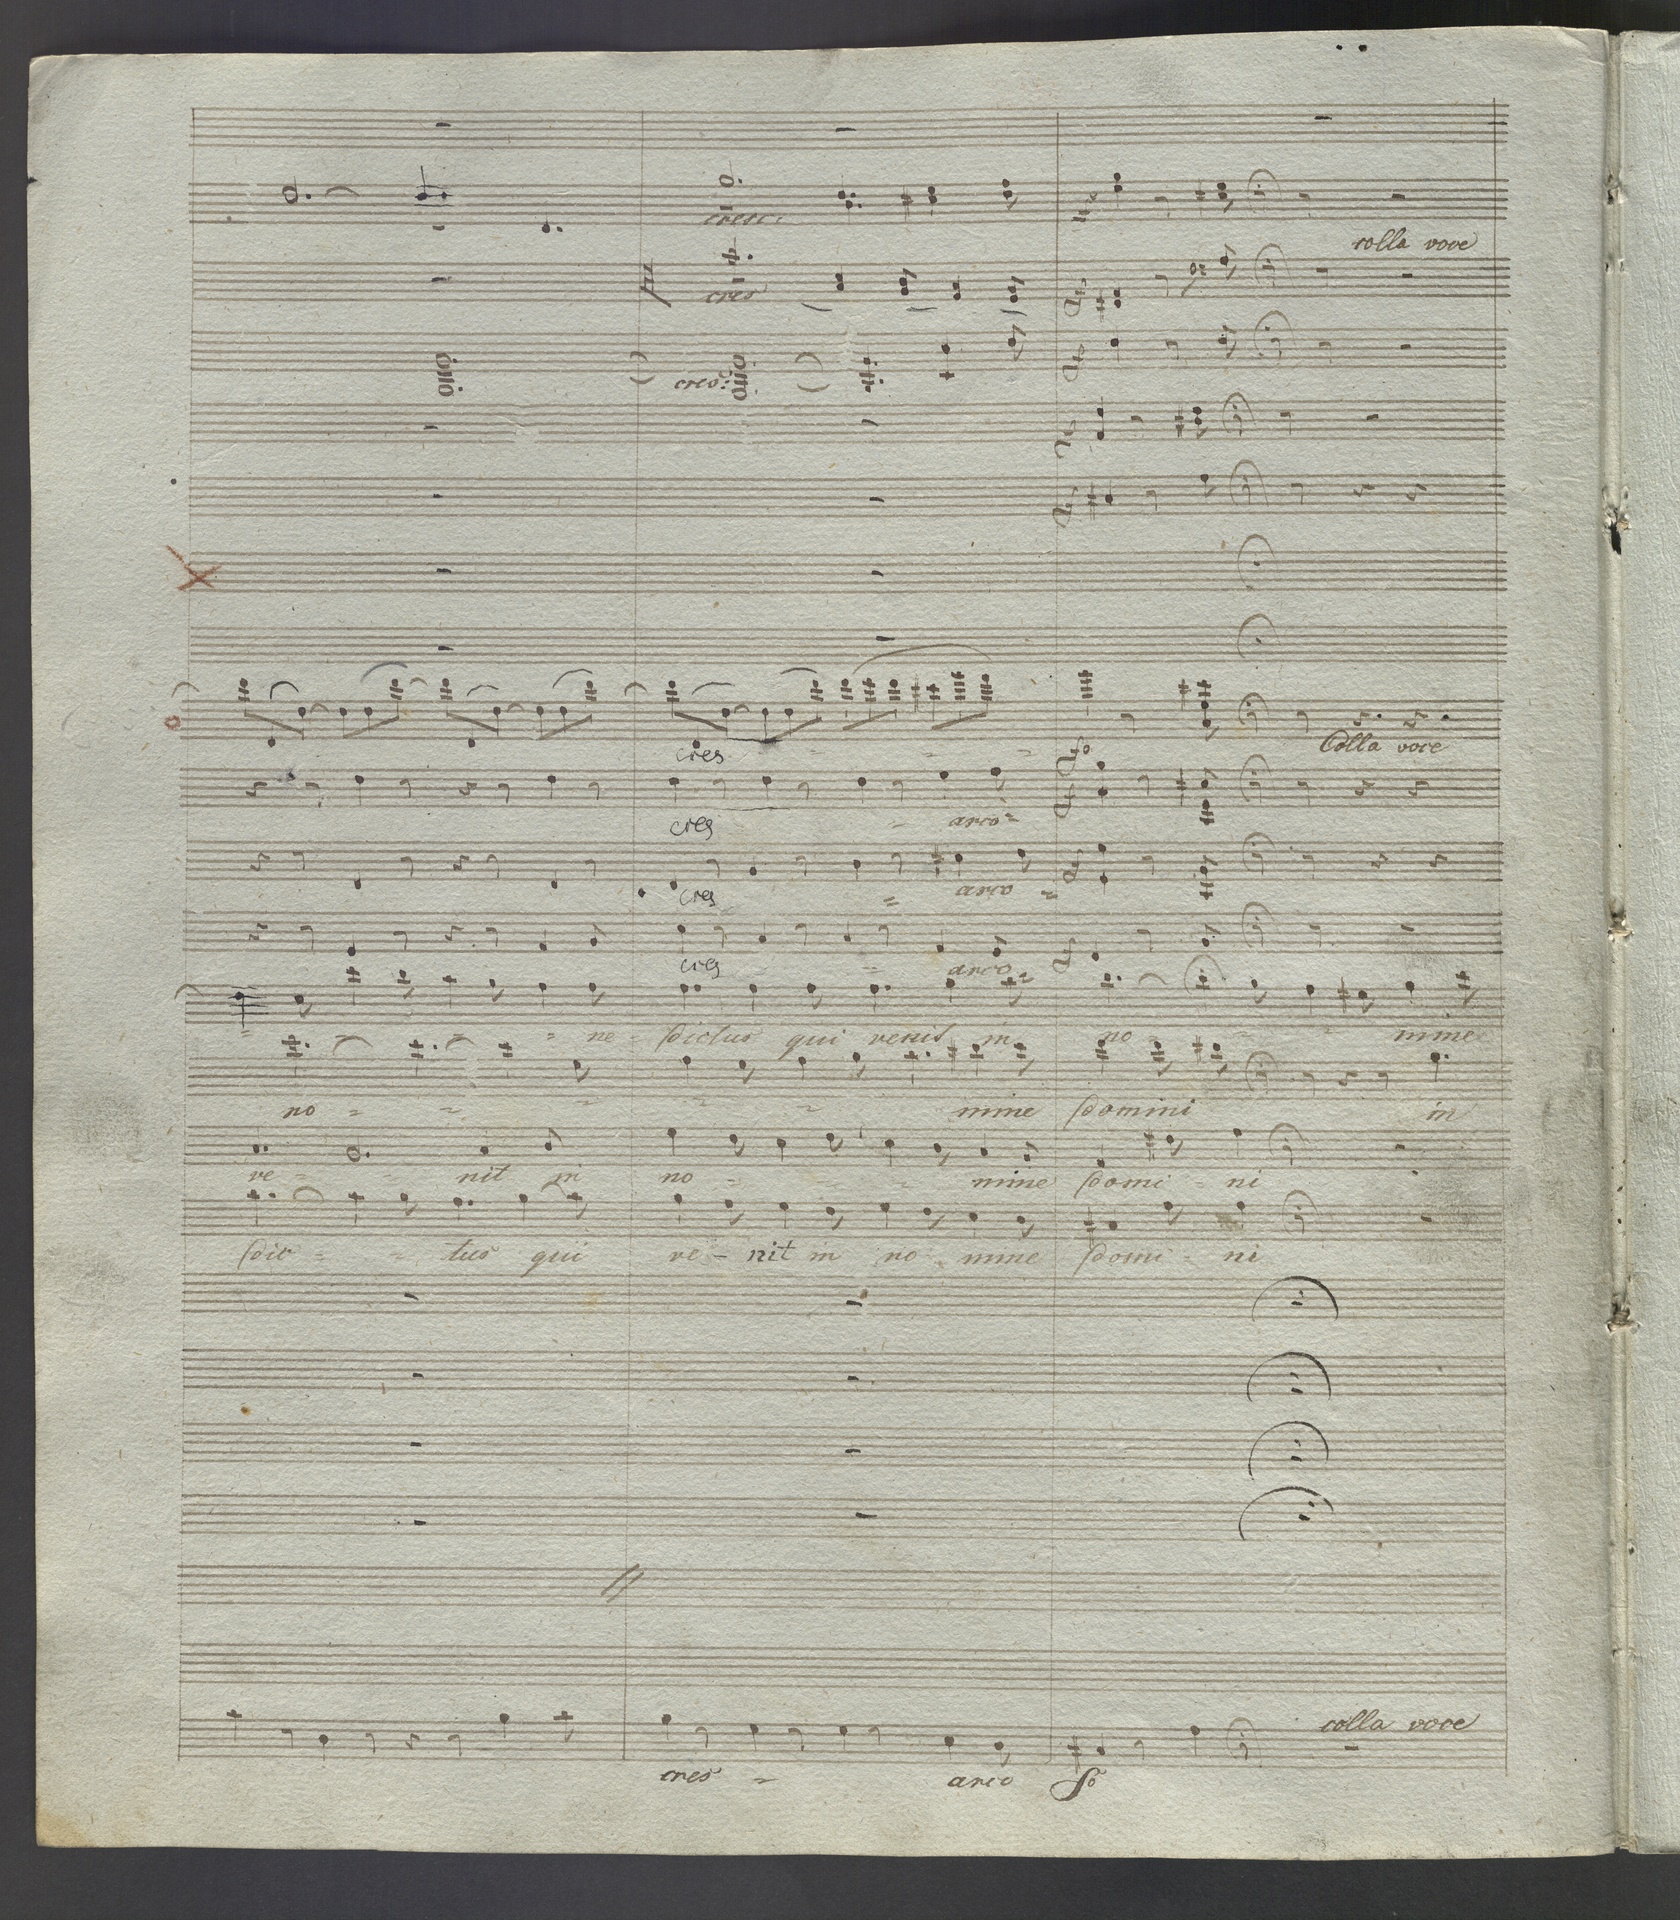 cresc:
colla voce
cres
cres:
fo
fo
fo
fo
cres
fo
Colla voce
cres
arco
fo
cres
arco
fo
cres
arco
fo
ne dictus qui venit in no mine
no mine Domini in
ve nit in no mine Domi ni
dic tus qui ve - nit in no mine Domi ni
colla voce
cres arco fo